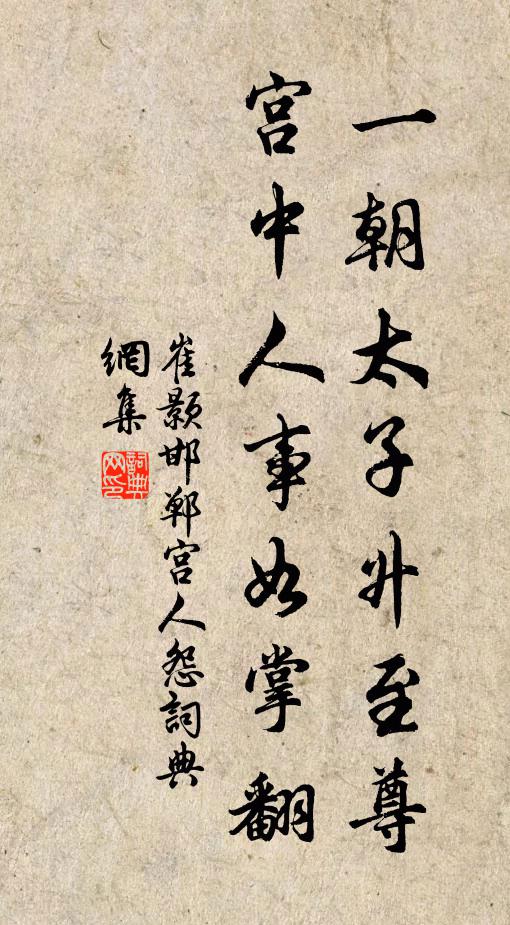 一朝太子升至尊
宫中人事如掌翻
崔颢邯郸宫人怨詞典
網集
詞典
网印